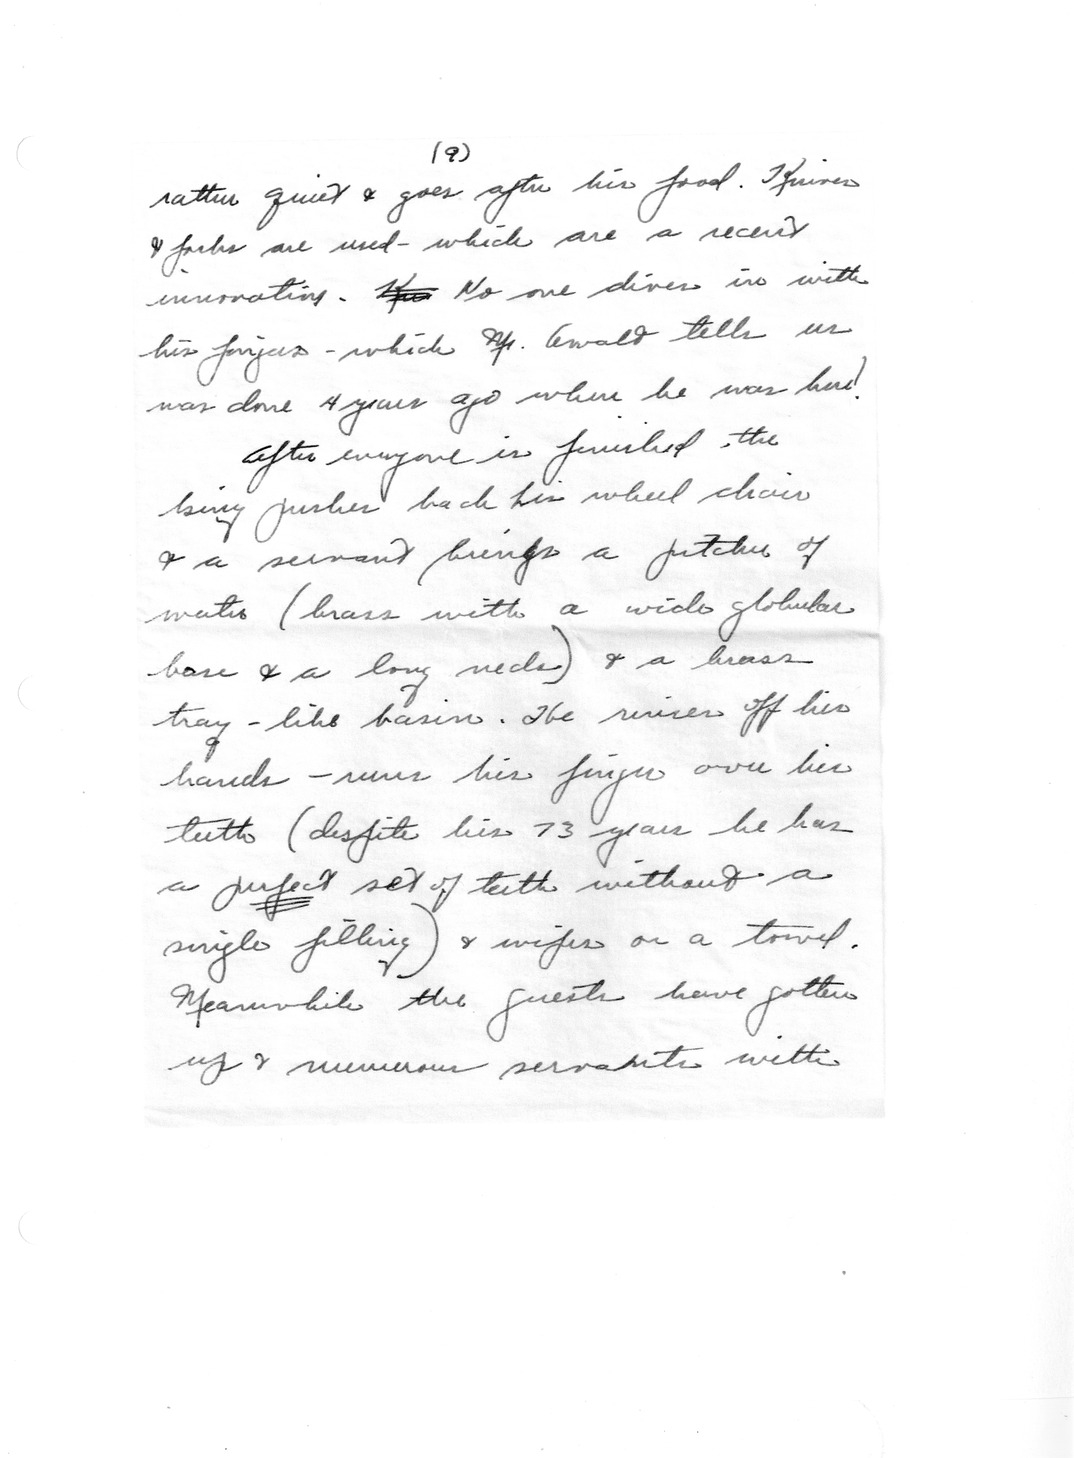 (9)
rather quiet & goes after his food. Knives
& forks are used - which are a recent
innovation. No one dives in with
his fingers - which Mr. Ewald tells us
was done 4 years ago when he was here!
After everyone is finished the
king pushes back his wheel chair
& a servant brings a pitcher of
water (brass with a wide globular
base & a long neck) & a brass
tray-like basin. He rinses off his
hands - runs his finger over his
teeth (despite his 73 years he has
a perfect set of teeth without a
single filling) & wipes on a towel.
Meanwhile the guests have gotten
up & numerous servants with